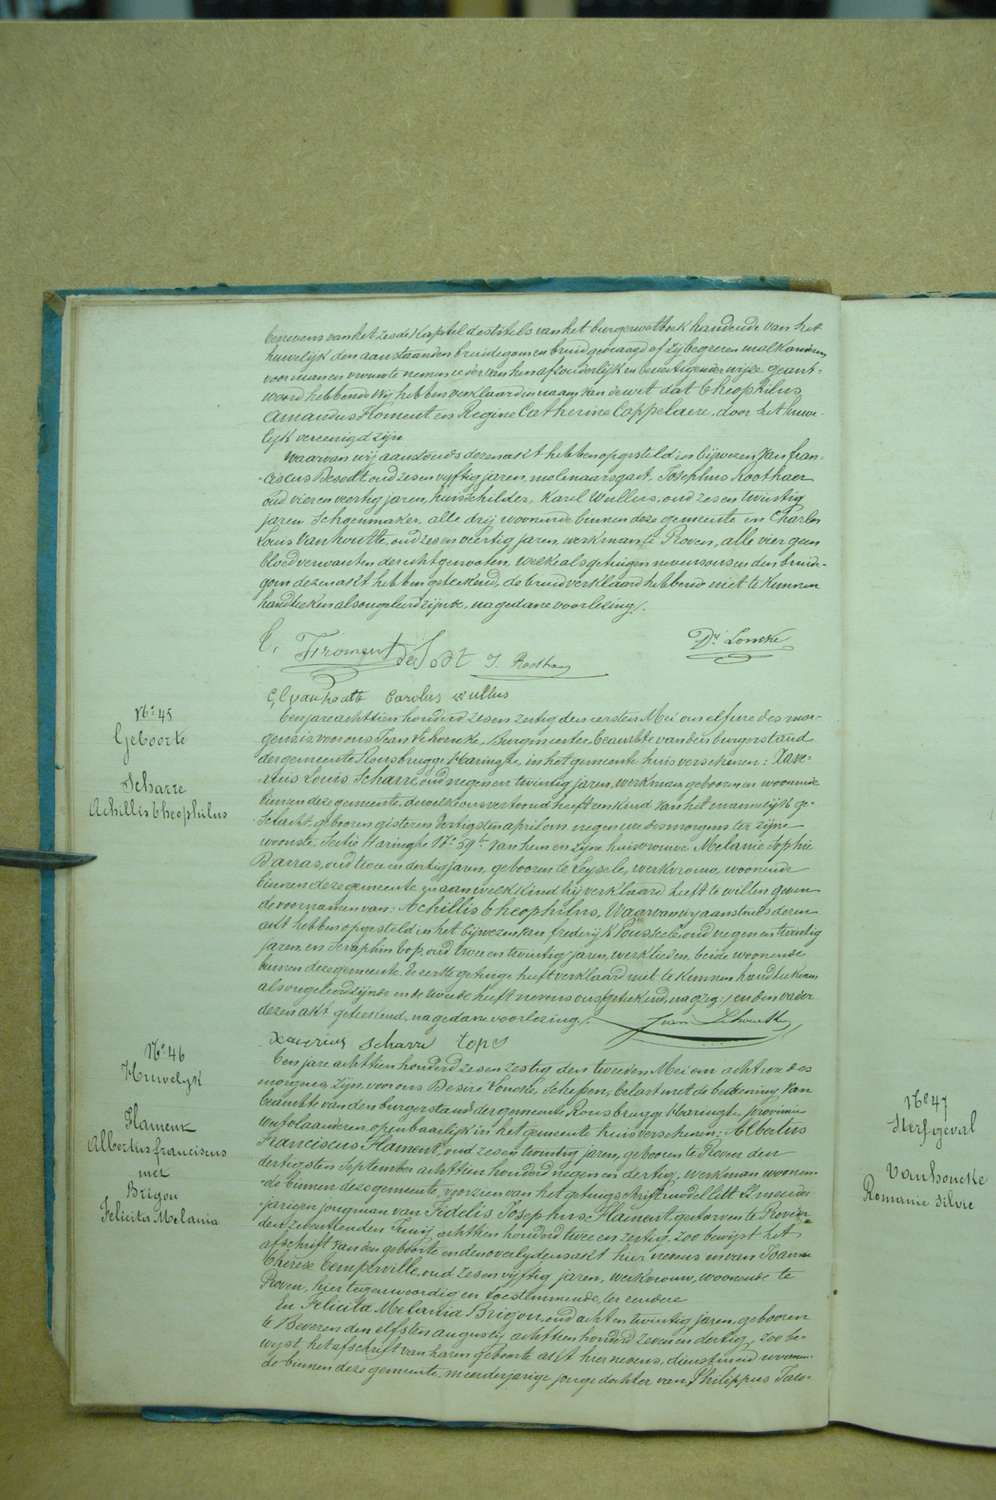 benevens van het zesde Kapittel des titels van het burgerwetboek handende van het
huwelijk den aanstaanden bruidegom en bruid gevraagd of zij begeeren malkanderen
voor man en vrouw te nemen, ieder van hen afzonderlijk en bevestigender wijze geant-
woord hebbende Wij hebben verklaard in naam van de wet dat Theophilus
Amandus Froment en Regine Catherine Cappelaere, door het huwe-
lijk vereenigd zijn
Waarvan wij aanstonds deze akt hebben opgesteld in bijwezen van Fran-
ciscus Desodt oud zes en vijftig jaren, molenaarsgast, Josephus Roothaer
oud vier en veertig jaren, huisschilder, Karel Wullus, oud zes en twintig
jaren Schoenmaker, alle drij woonende binnen deze gemeente en Charles
Louis Vanhoutte, oud zes en veertig jaren, werkman te Proven, alle vier geen
bloedverwanten der echtgenooten, welke als getuigen nevens ons en den bruide-
gom deze akt hebben geteekend, de bruid verklaard hebbende niet te kunnen
handteeken als ongeleerd zijnde, na gedane voorlezing/.
T. Froment
Dr. Loncke
de Sodt J. Roothaer
C L vanhoutte Carolus Wullus
Nr. 45
Geboorte
Scharre
Achillis Theophilus
Een jare achttien honderd zes en zestig den eersten Mei om elf ure des mor-
gens is voor ons Jean Lehoucke, Burgmeester, beambte van den burgerstand
der gemeente Rousbrugge Haringhe, in het gemeente huis verschenen: Xave-
rius Louis Scharre, oud negen en twintig jaren, werkman geboren en woonende
binnen deze gemeente, dewelke ons vertoond heeft een kind van het mannelijk ge-
slacht, geboren gisteren dertigsten april om negen ure des morgens ter zijne
woonste, Sectie Haringhe Nr. 59 van hem en zijne huisvrouwe Melanie Sophie
Darras, oud twee en dertig jaren, geboren te Leysele, werkvrouw, woonende
binnen deze gemeente en aan welk kind hij verklaard heeft te willen geven
de voornamen van: Achillis Theophilus, Waarvan wij aanstonds deze
akt hebben opgesteld in het bijwezen van frederijk Pousseele, oud negen en twintig
jaren, en Seraphin Cop, oud twee en twintig jaren, werklieden, beide woonende
binnen deze gemeente. de eerste getuige heeft verklaard niet te kunnen handteekenen
als ongeleerd zijnde en de tweede heeft nevens ons geteekend, en den vader
deze akt geteekend, na gedane voorlezing/.
Xaverius Scharre Cop S
Nr. 46
Huwelijk
Flament
Albertus franciscus
met
Brigou
Felicita Melania
Een jare achttien honderd zes en zestig den tweeden Mei om acht ure des
morgens, zijn voor ons Desiré Loncke Schepen, belast met de bediening van
beambte van den burgerstand der gemeente Rousbrugge Haringhe, provincie
westvlaanderen, openbaarlijk in het gemeente huis verschenen: Albertus
Franciscus Flament, oud zes en twintig jaren, geboren te Proven den
dertigsten September achttien honderd negen en dertig, werkman woonen-
de binnen deze gemeente, voorzien van het getuigschrift meerder-
jarigen jongman van Fidelis Josephus Flament, gestorven te Proven
den zeventienden Junij achttien honderd twee en zestig, zoo bewijst het
afschrift van den geboorte en den overlijdensakt hier nevens en van Joanna
Therese Temperville, oud zes en vijftig jaren, werkvrouw, woonende te
Proven, hier tegenwoordig en toestemmende, ter eendere
En Felicita Melania Brigou, oud acht en twintig jaren, geboren
te Beveren den elfsten augusty achttien honderd zeven en dertig, zoo be-
wijst het afschrift van haren geboorte akt hier nevens, dienstmeid woonen-
de binnen deze gemeente, meerderjarige jonge dochter van Philippus Jaco-
Nr. 47
Sterfgeval
Vanhoucke
Romanie Silvie